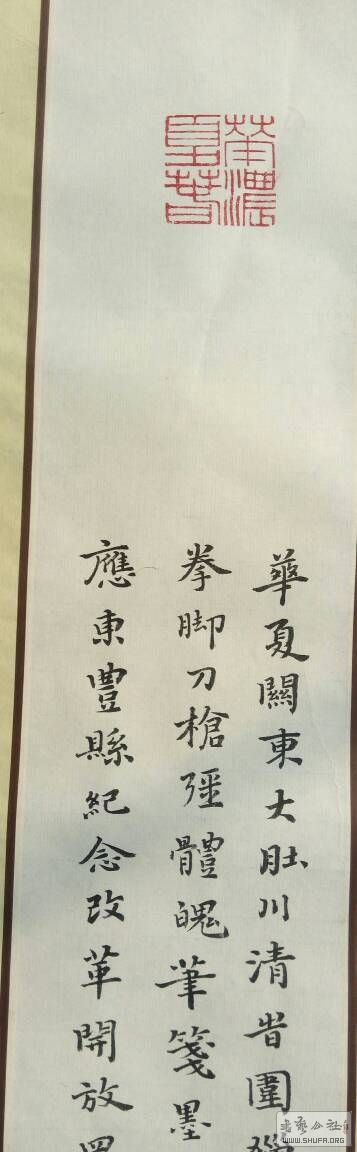 華夏關東大肚川清旹圍
拳脚刀槍彊體魄筆箋墨
應東豐縣紀念改革開放
WWW.SHUFA.ORG